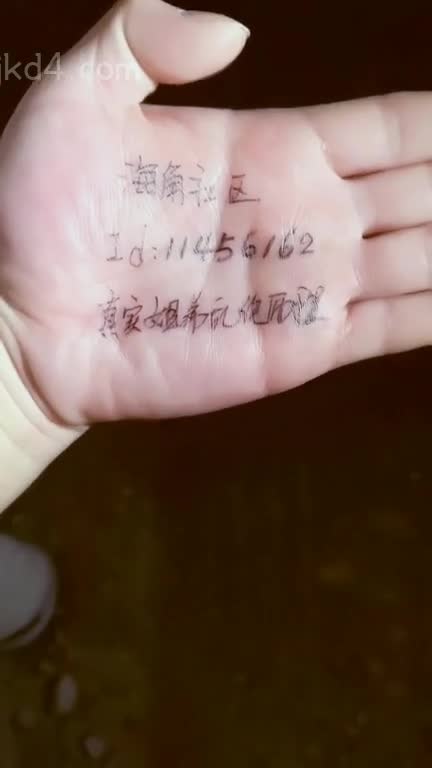 jkd4.com
海角社区
Id:11456162
真实姐弟乱伦